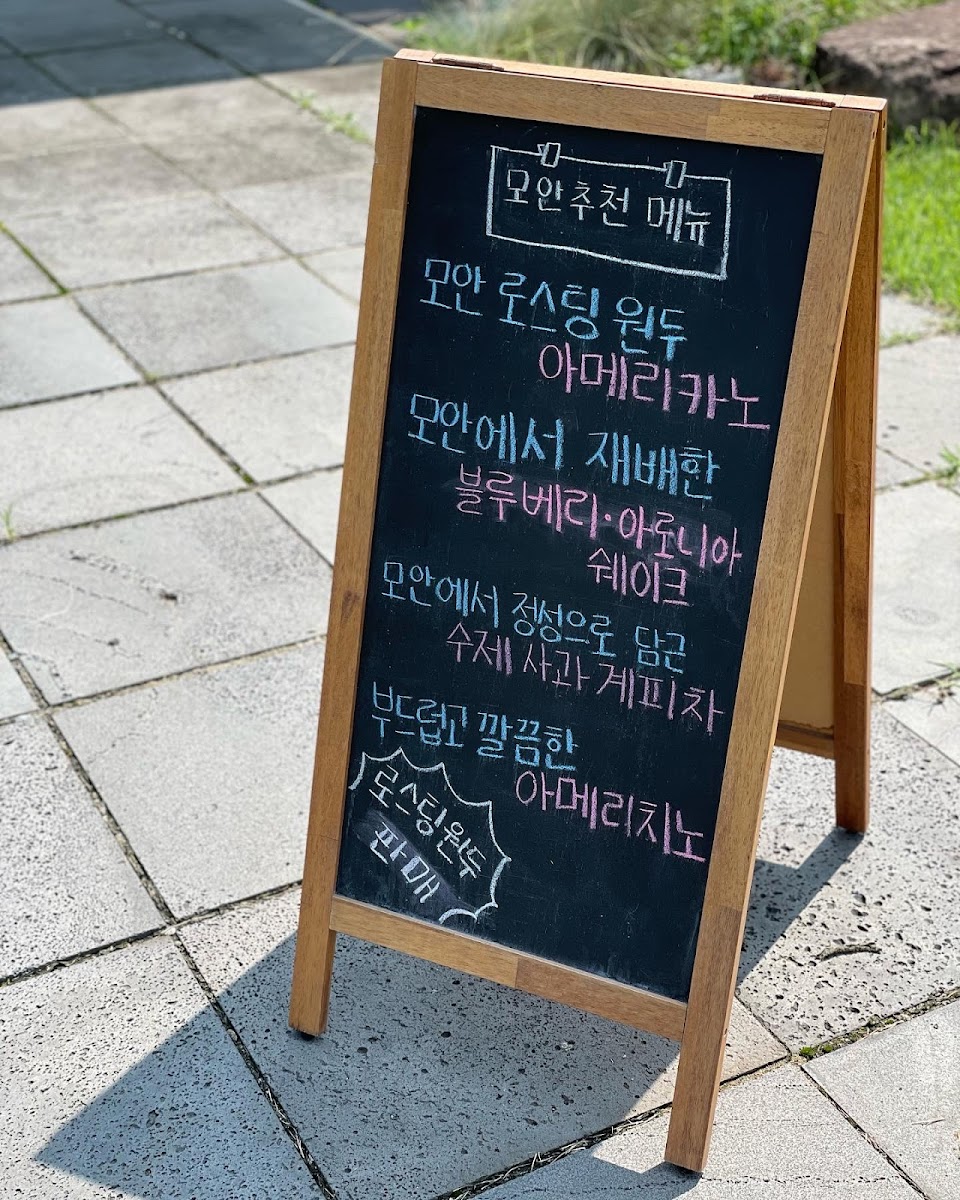 모안추천 메뉴
모안 로스팅 원두
아메리카노
모안에서 재배한
블루베리·아로니아
쉐이크
모안에서 정성으로 담근
수제 사과 계피차
부드럽고 깔끔한
아메리치노
로스팅원두
판매